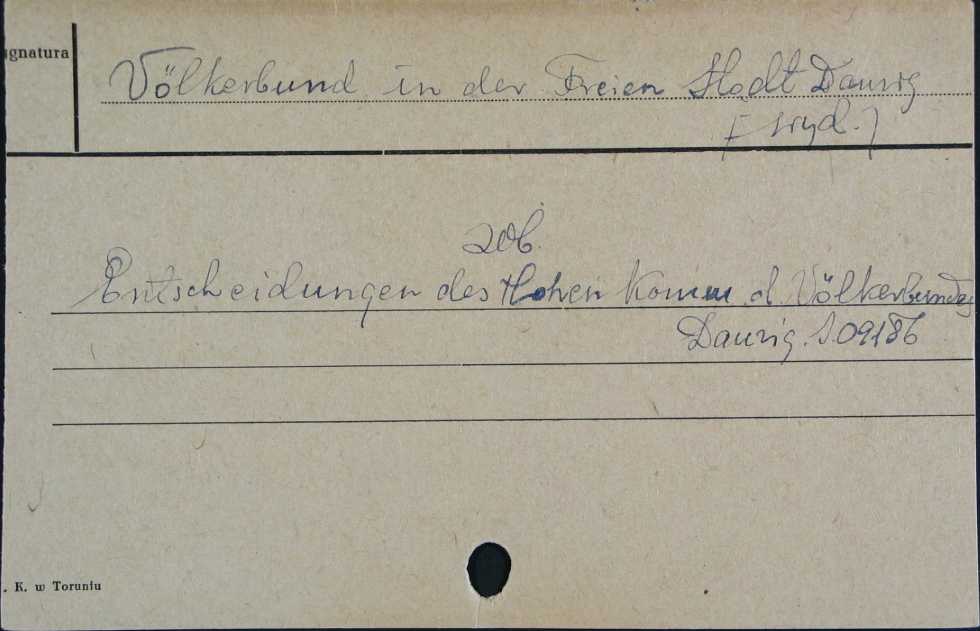 ignatura
Völkerbund in der Freien Stadt Danzig
[wyd.]
zob.
Entscheidungen des Hohen Komm. d. Völkerbundes
Danzig. S.09186
. K. w Toruniu